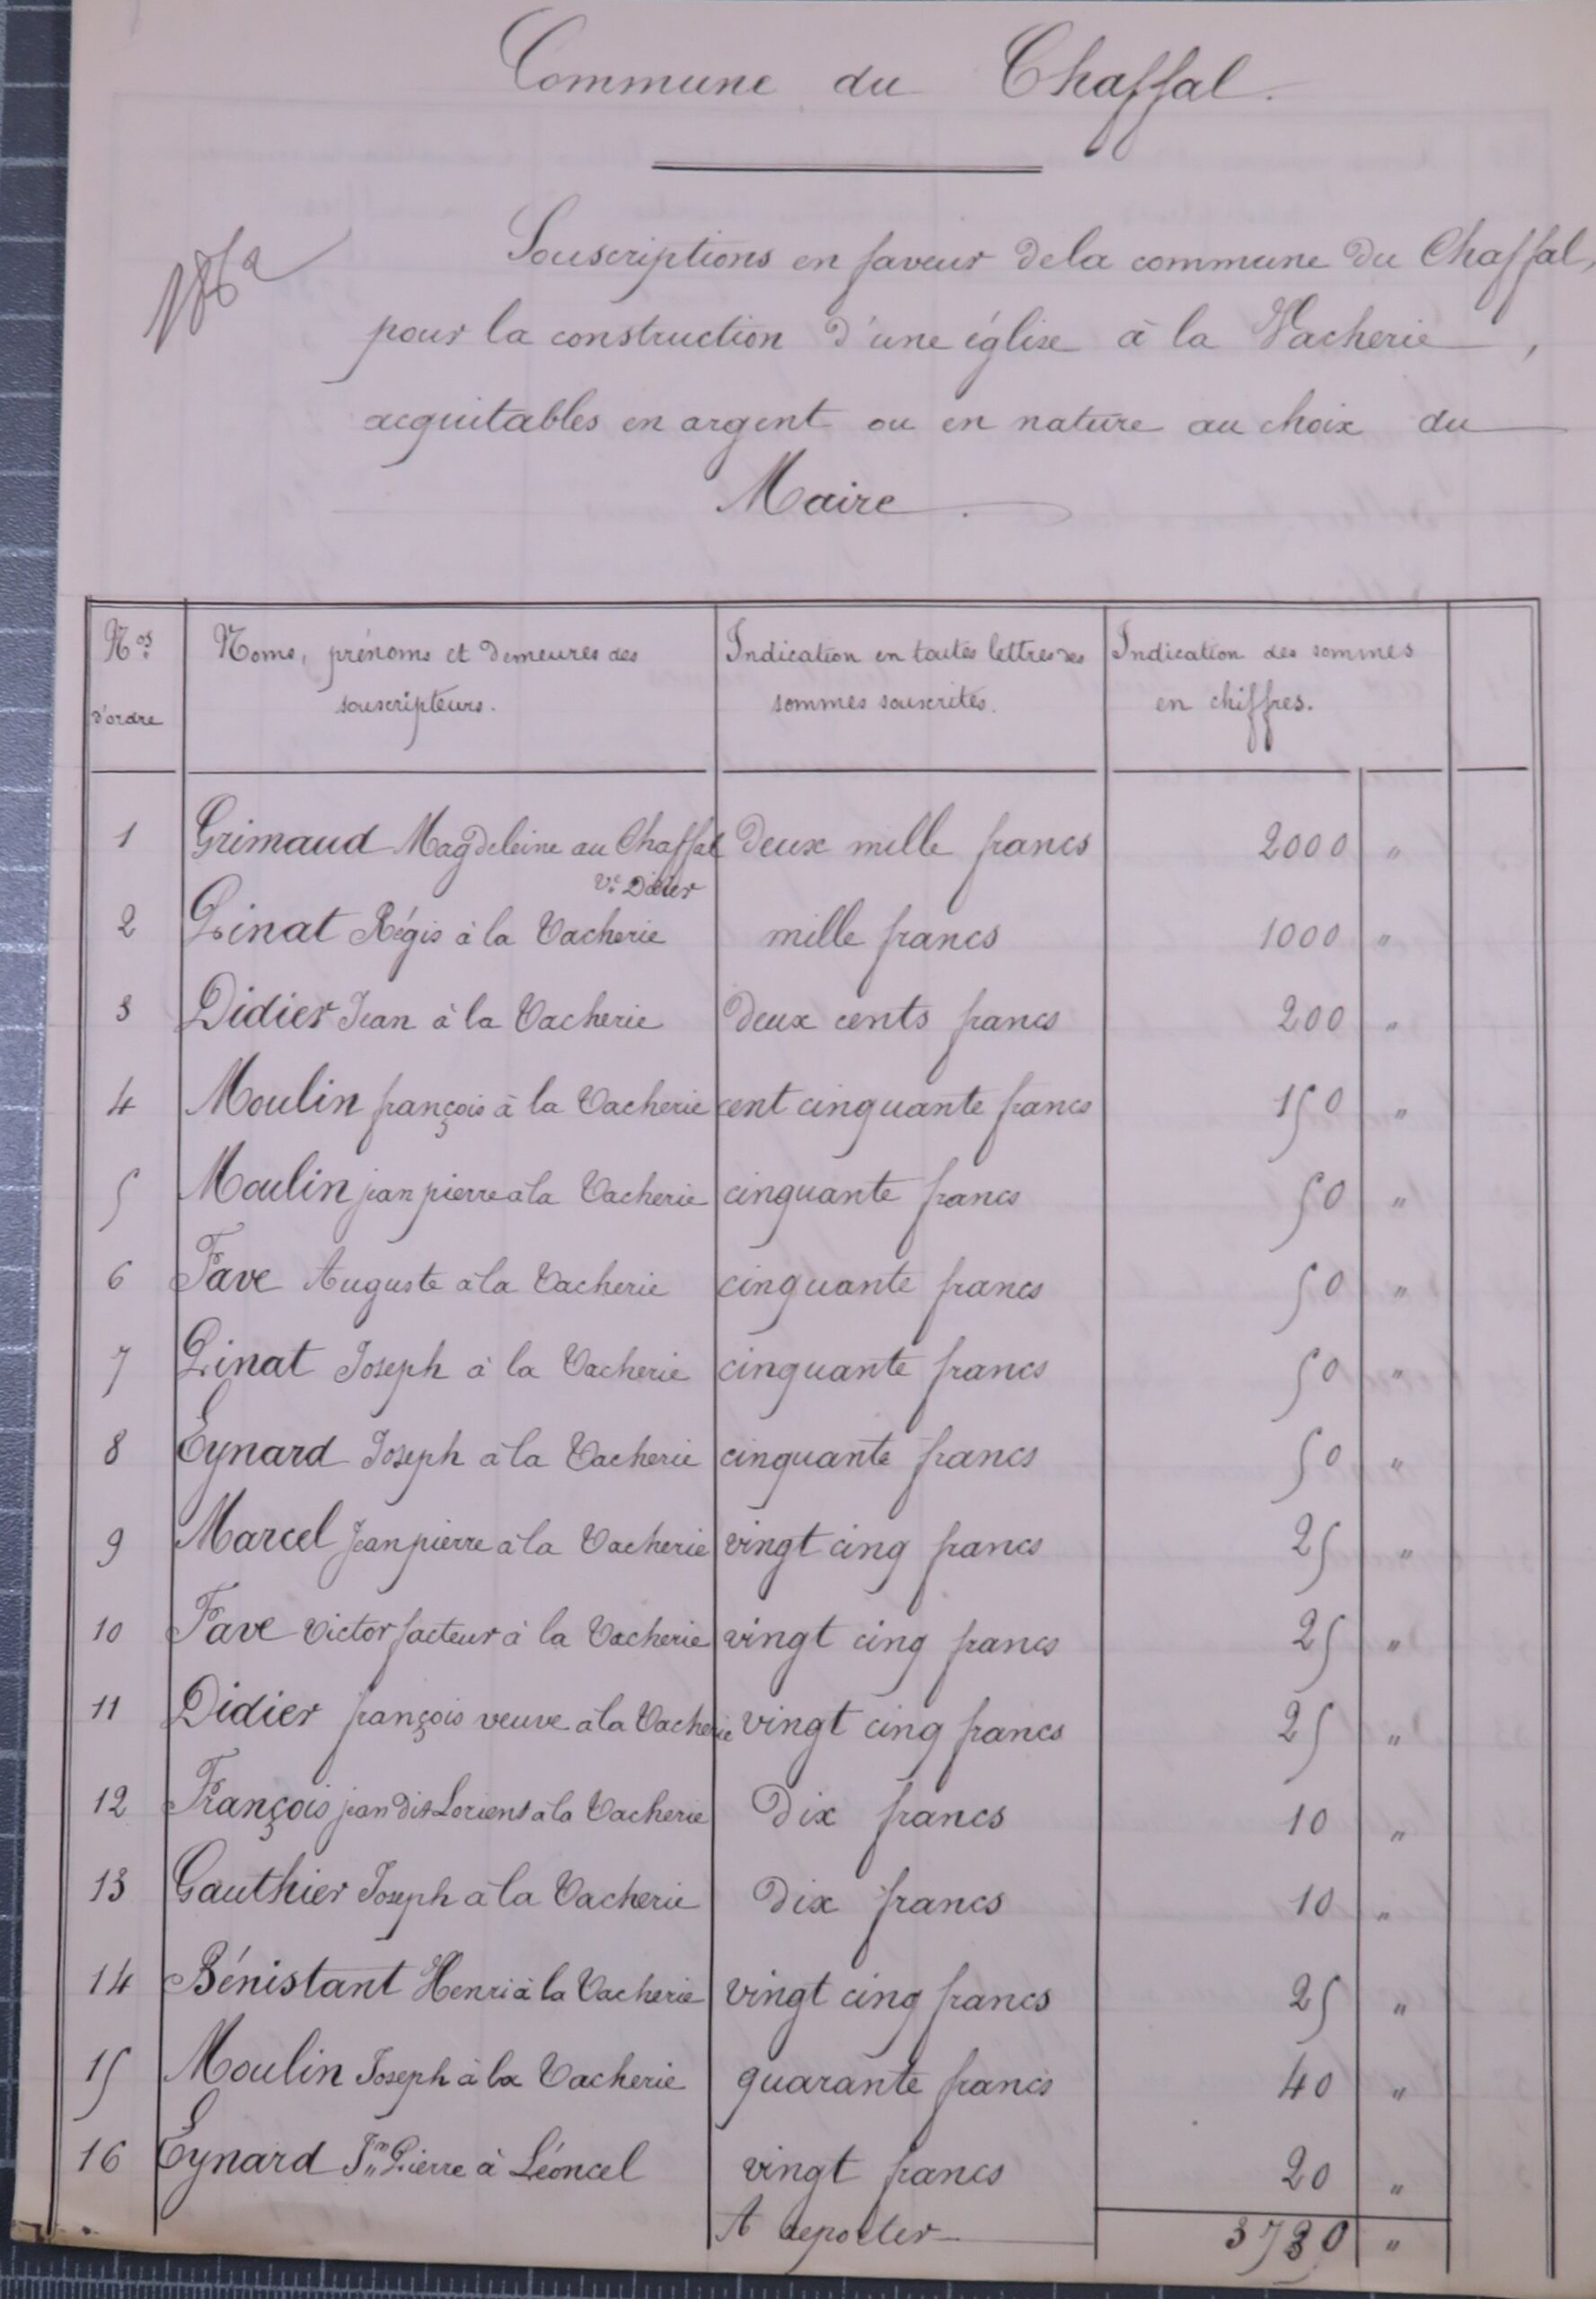 Commune du Chaffal.
Souscriptions en faveur de la commune du Chaffal,
pour la construction d'une église à la Vacherie,
acquitables en argent ou en nature au choix du
Maire.
Nos d'ordre | Noms, prénoms et demeures des souscripteurs. | Indication en toutes lettres des sommes souscrites. | Indication des sommes en chiffres.
1 Grimaud Magdeleine au Chaffal Deux mille francs 2000 "
Ve Didier
2 Pinat Régis à la Vacherie mille francs 1000 "
3 Didier Jean à la Vacherie Deux cents francs 200 "
4 Moulin françois à la Vacherie cent cinquante francs 150 "
5 Moulin jean pierre à la Vacherie cinquante francs 50 "
6 Fave Auguste à la Vacherie cinquante francs 50 "
7 Pinat Joseph à la Vacherie cinquante francs 50 "
8 Eynard Joseph à la Vacherie cinquante francs 50 "
9 Marcel Jean pierre à la Vacherie vingt cinq francs 25 "
10 Fave Victor facteur à la Vacherie vingt cinq francs 25 "
11 Didier françois veuve à la Vacherie vingt cinq francs 25 "
12 François jean dit Lorient à la Vacherie Dix francs 10 "
13 Gauthier Joseph à la Vacherie Dix francs 10 "
14 Bénistant Henri à la Vacherie vingt cinq francs 25 "
15 Moulin Joseph à la Vacherie quarante francs 40 "
16 Eynard Jn Pierre à Léoncel vingt francs 20 "
A reporter 3730 "